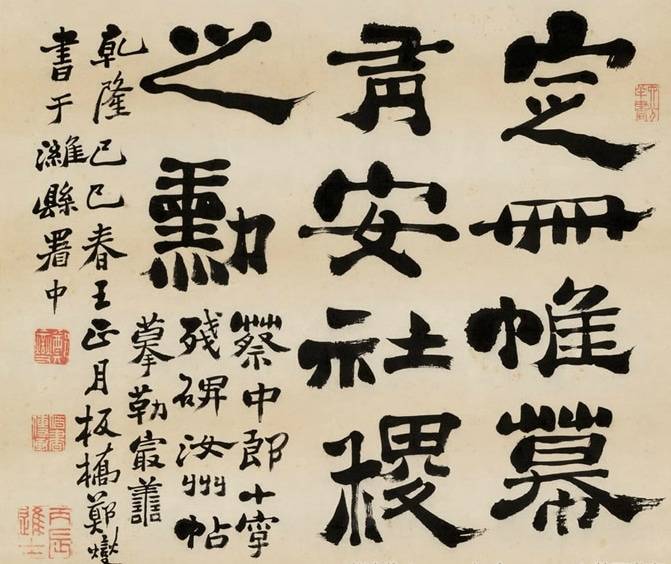 定冊帷幕
有安社稷
之勳
蔡中郎十字
殘碑汝州帖
摹勒最譱
乾隆己巳春王正月板橋鄭燮
書于濰縣署中
丙辰進士